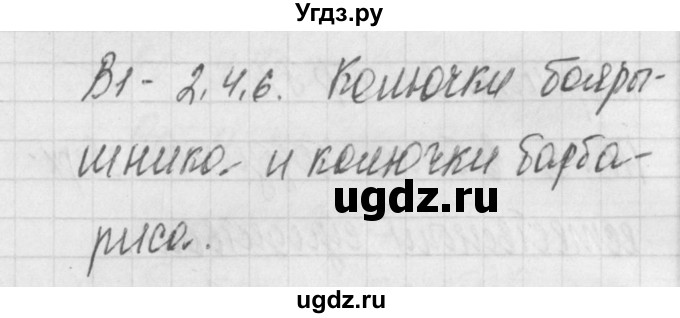 Угдз.ру
В1 - 2.4.6. Колючки бояры-
шника и колючки барба-
ugdz.ru
риса.
ugdz.ru